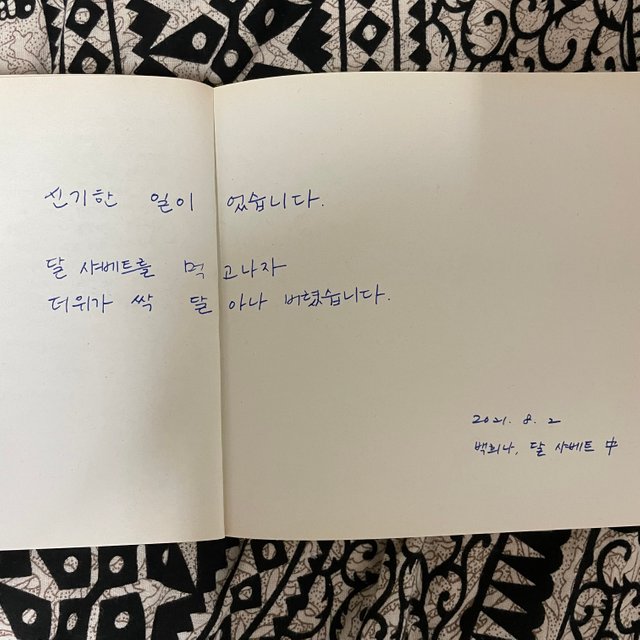 신기한 일이 었습니다.
달 샤베트를 먹 고나자
더위가 싹 달 아나 버렸습니다.
2021. 8. 2
백희나, 달 샤베트 中